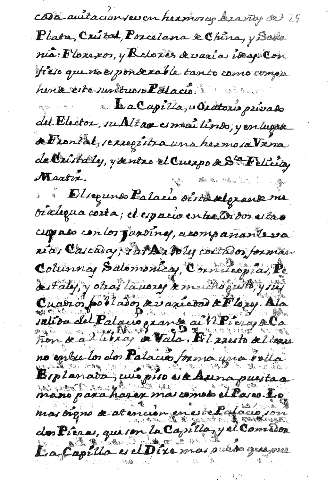 cada avitación se ven hermosas
Plata, Cristal, Porcelana de China, y
nia: Florexos, y Reloxes de varias ideas: Con
fieso que no es ponderable tanto como compo
hende este suntuoso Palacio.
La Capilla, u Oratorio privado
del Elector, su Altar es mui lindo, y en lugar
de Frontal, se registra una hermosa Urna
de Cristales, y dentro el Cuerpo de Sta. Felicitas
Martir.
El segundo Palacio dista del grande me
dia legua corta; el espacio entre los dos esta o
cupado con los Jardines, acompañan de va
rias Cascadas; Arboles cortados forman
Columnas Salomonicas, Cornucopias, Pe
destales, y otras labores de mucho gusto, y sus
Cuadros poblados de variedad de Flores. A la
salida del Palacio grande Piezas de Ca
ñon de a libras de Vala. El resto de
no entre los dos Palacios forma una vella
Esplanada, cuio piso es de Arena puesta a
mano para hacer mas comodo el Paseo. Lo
mas digno de atención en este Palacio, son
dos Piezas, que son la Capilla, y el Comedor
La Capilla es el mas